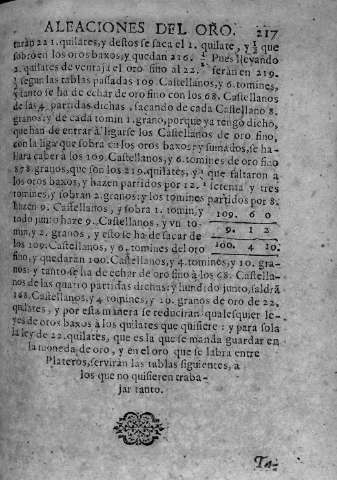 ALEACIONES DEL ORO. 217
tarán 221. quilates, y destos se saca el 1. quilate, y ½ que
sobró en los oros baxos, y quedan 216. Pues llevando
2. quilates de ventaja el oro fino al 22. serán en 219.
segun las tablas passadas 109. Castellanos, y 6. tomines,
y tanto se ha de echar de oro fino con los 68. Castellanos
de las 4. partidas dichas, sacando de cada Castellano 8.
granos, y de cada tomin 1. grano, porque ya tengo dicho,
que han de entrar à ligarse los Castellanos de oro fino,
con la liga que sobra en los oros baxos: y sumados, se ha-
llará caber à los 109. Castellanos, y 6. tomines de oro fino
878. granos, que son los 219. quilates, y que faltaron a
los oros baxos, y hazen partidos por 12. setenta y tres
tomines, y sobran 2. granos: y los tomines partidos por 8.
hazen 9. Castellanos, y sobra 1. tomin, y
todo junto haze 9. Castellanos, y vn to-
min, y 2. granos, y esto se ha de sacar de
los 109. Castellanos, y 6. tomines del oro
109. 6 0
9. 1 2
100. 4 10.
fino, y quedarán 100. Castellanos, y 4. tomines, y 10. gra-
nos: y tanto se ha de echar de oro fino à los 68. Castella-
nos de las quatro partidas dichas: y hundido junto, saldrá
168. Castellanos, y 4 tomines, y 10. granos de oro de 22.
quilates, y por esta manera se reducirán qualesquier le-
yes de oros baxos à los quilates que quisiere: y para sola
la ley de 22. quilates, que es la que se manda guardar en
la moneda de oro, y en el oro que se labra entre
Plateros, servirán las tablas siguientes, a
los que no quisieren traba-
jar tanto.